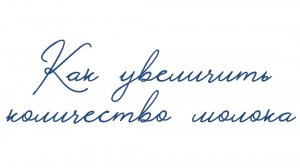 Как увеличить
количество молока